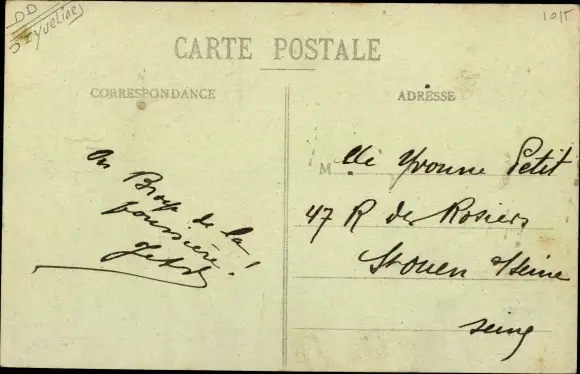 DD
Yvelines
10/5
CARTE POSTALE
CORRESPONDANCE
On
de la
poussière!
ADRESSE
M lle Yvonne Petit
47 R des Rosiers
St Ouen s/Seine
Seine